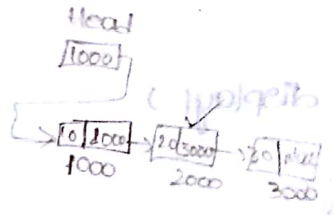 Head
1000
10 2000 20 3000
1000 2000 3000